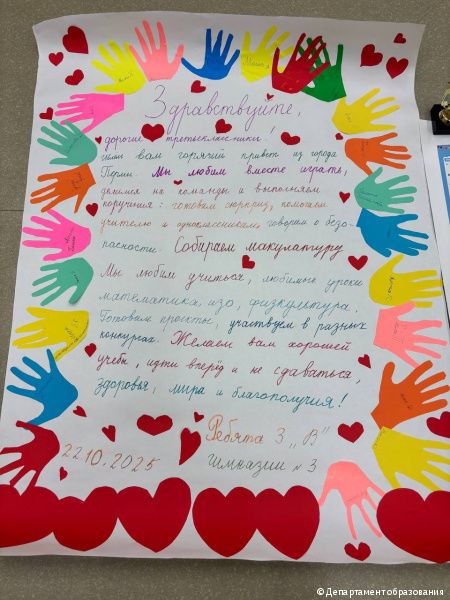 Здравствуйте,
дорогие третьеклассники!
Шлём вам горячий привет из города
Перми. Мы любим вместе играть,
делимся на команды и выполняем
поручения: готовим сюрприз, помогаем
учителю и одноклассникам, говорим о безо-
пасности. Собираем макулатуру.
Мы любим учиться, любимые уроки
математика, изо, физкультура.
Готовим проекты, участвуем в разных
конкурсах. Желаем вам хорошей
учёбы, идти вперёд и не сдаваться,
здоровья, мира и благополучия!
Ребята 3 „В"
22.10.2025 гимназии № 3
© Департамент образования